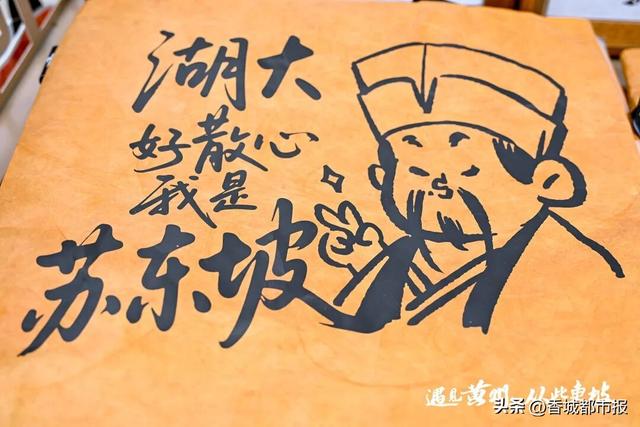 湖大
好散心
我是
苏东坡
遇见黄州 从此東坡
头条 @香城都市报